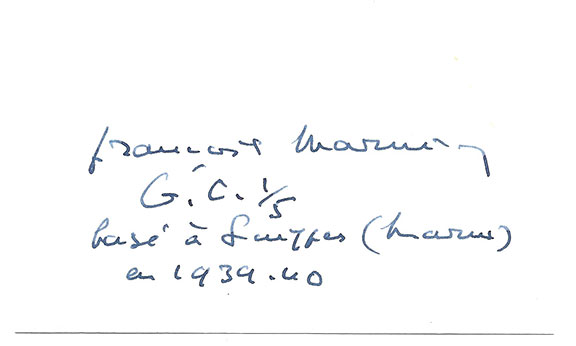 françois
G.C. 1/5
basé à Suippes (Marne)
en 1939.40